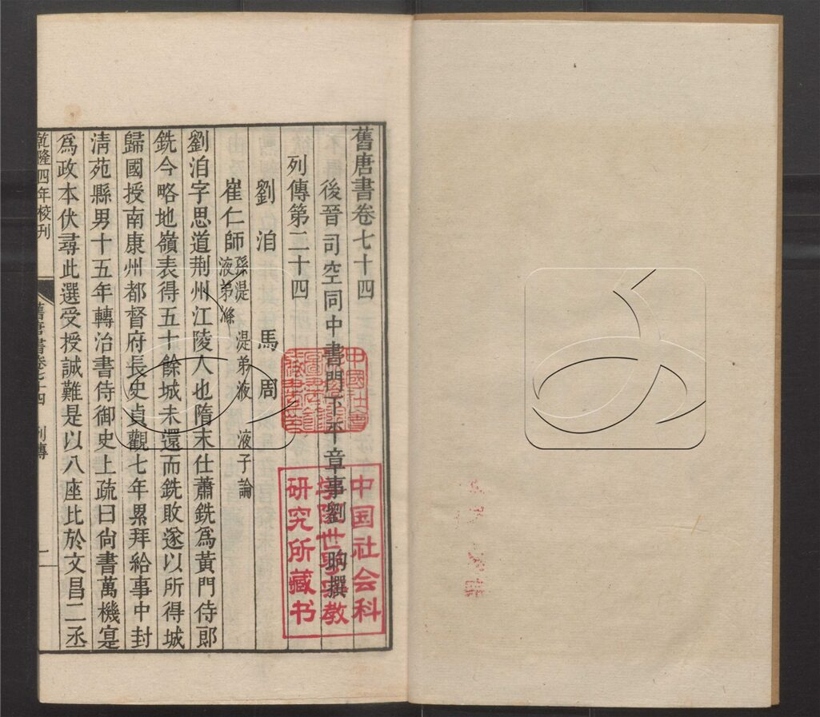 舊唐書卷七十四
後晉司空同中書門下平章事劉昫撰
列傳第二十四
劉洎 馬周
崔仁師 孫湜 湜弟液 液子論
液弟滌
劉洎字思道荆州江陵人也隋末仕蕭銑爲黃門侍郎
銑令略地嶺表得五十餘城未還而銑敗遂以所得城
歸國授南康州都督府長史貞觀七年累拜給事中封
清苑縣男十五年轉治書侍御史上疏曰尚書萬機寔
爲政本伏尋此選受授誠難是以八座比於文昌二丞
乾隆四年校刊
舊唐書卷七十四 列傳
一
中国社会科
学院世界宗教
研究所藏书